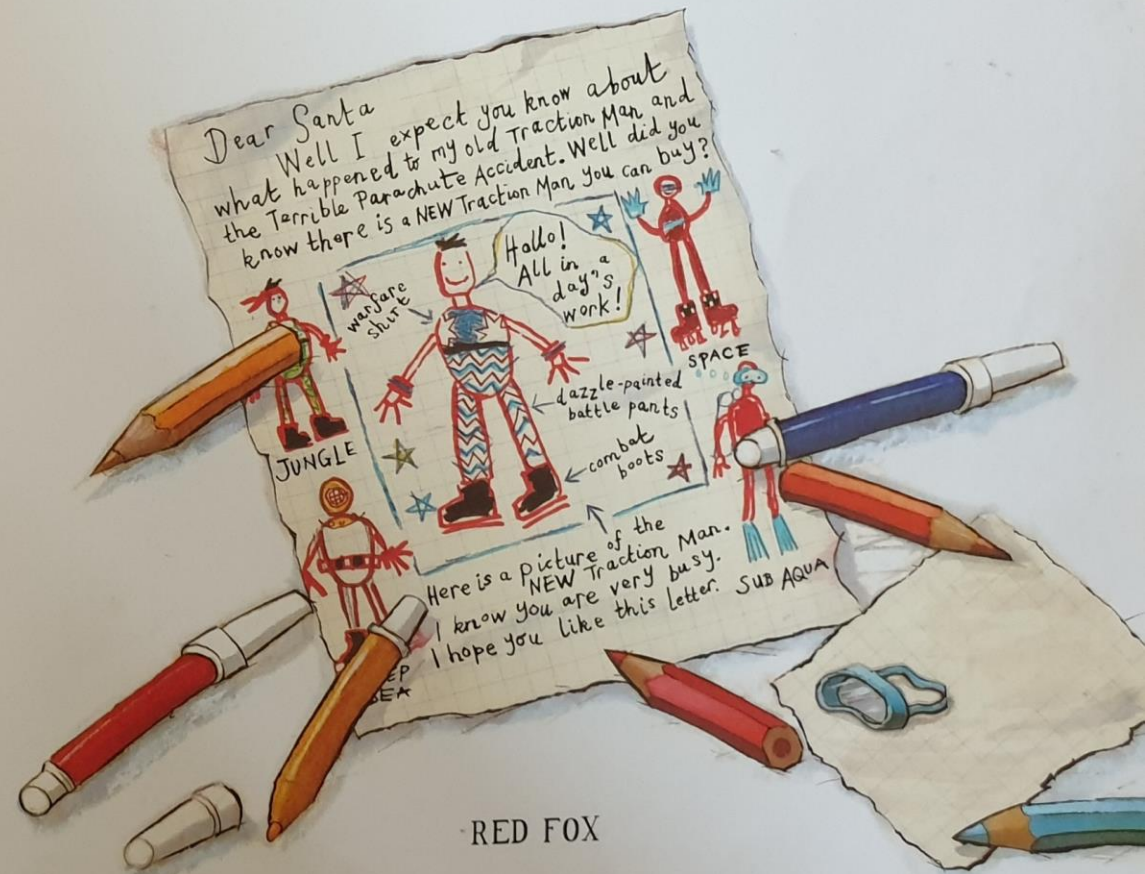 Dear Santa
Well I expect you know about
what happened to my old Traction Man and
the Terrible Parachute Accident. Well did you
know there is a NEW Traction Man you can buy?
Hallo!
All in a
day's
work!
warfare
shirt
SPACE
dazzle-painted
battle pants
combat
boots
JUNGLE
Here is a picture of the
NEW Traction Man.
I know you are very busy.
I hope you like this letter.
SUB AQUA
EP
SEA
RED FOX